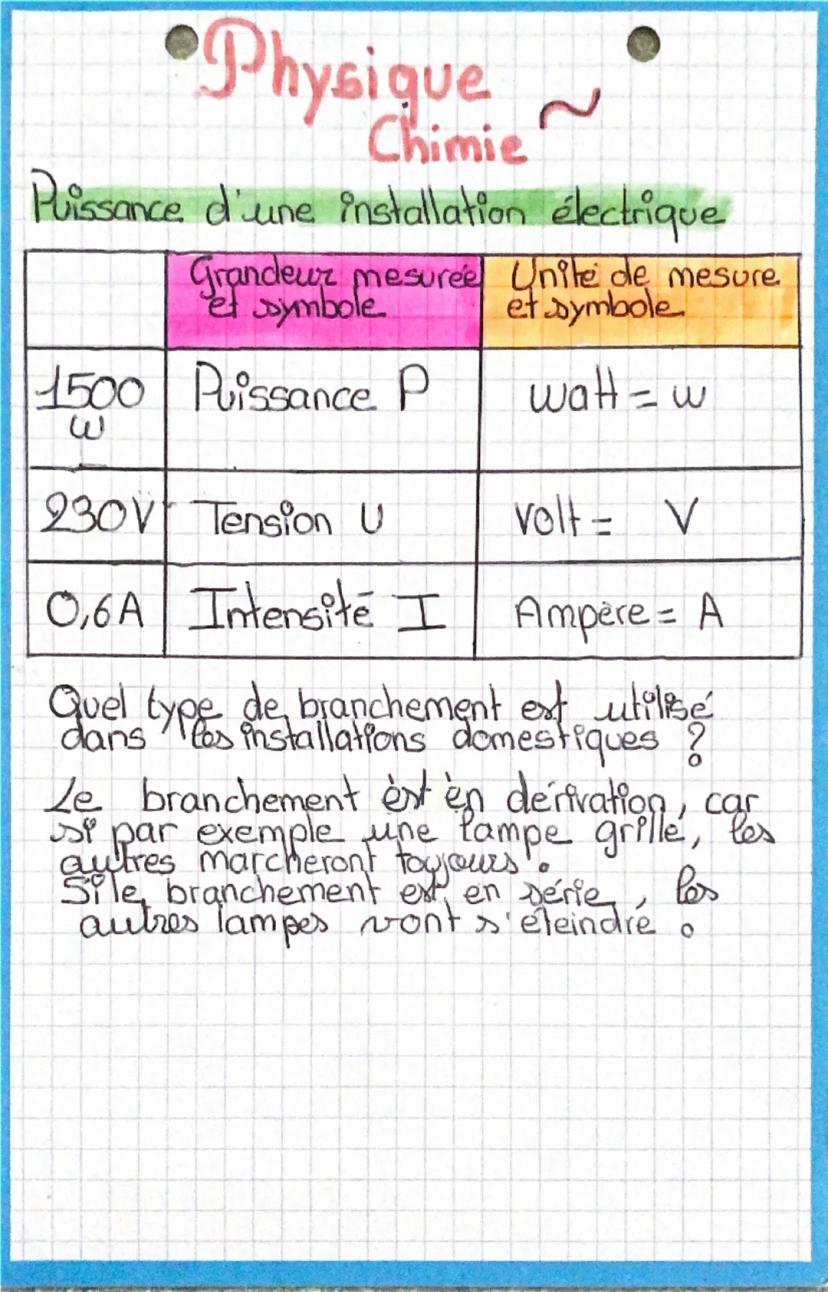 Physique
Chimie ~
Puissance d'une installation électrique
Grandeur mesurée et symbole
Unité de mesure et symbole
1500 W
Puissance P
watt = w
230V
Tension U
volt = V
0,6A
Intensité I
Ampère = A
Quel type de branchement est utilisé
dans les installations domestiques ?
Le branchement èst èn dérivation, car
si par exemple une lampe grille, les
autres marcheront toujours.
Si le branchement est en série, les
autres lampes vont s'éteindre.